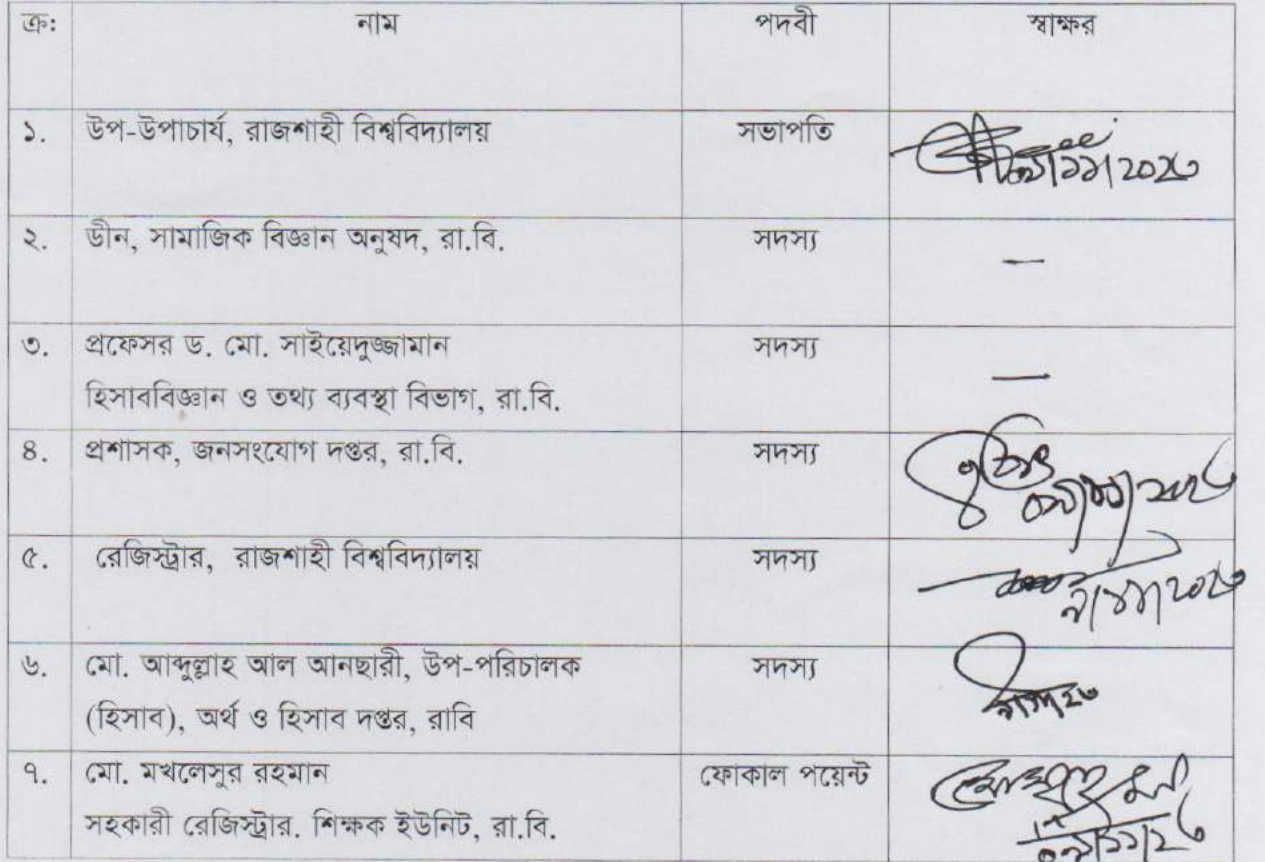 ক্র: নাম পদবী স্বাক্ষর
১. উপ-উপাচার্য, রাজশাহী বিশ্ববিদ্যালয় সভাপতি
২. ডীন, সামাজিক বিজ্ঞান অনুষদ, রা.বি. সদস্য —
৩. প্রফেসর ড. মো. সাইয়েদুজ্জামান সদস্য —
হিসাববিজ্ঞান ও তথ্য ব্যবস্থা বিভাগ, রা.বি.
৪. প্রশাসক, জনসংযোগ দপ্তর, রা.বি. সদস্য
৫. রেজিস্ট্রার, রাজশাহী বিশ্ববিদ্যালয় সদস্য
৬. মো. আব্দুল্লাহ আল আনছারী, উপ-পরিচালক সদস্য
(হিসাব), অর্থ ও হিসাব দপ্তর, রাবি
৭. মো. মখলেসুর রহমান ফোকাল পয়েন্ট
সহকারী রেজিস্ট্রার. শিক্ষক ইউনিট, রা.বি.